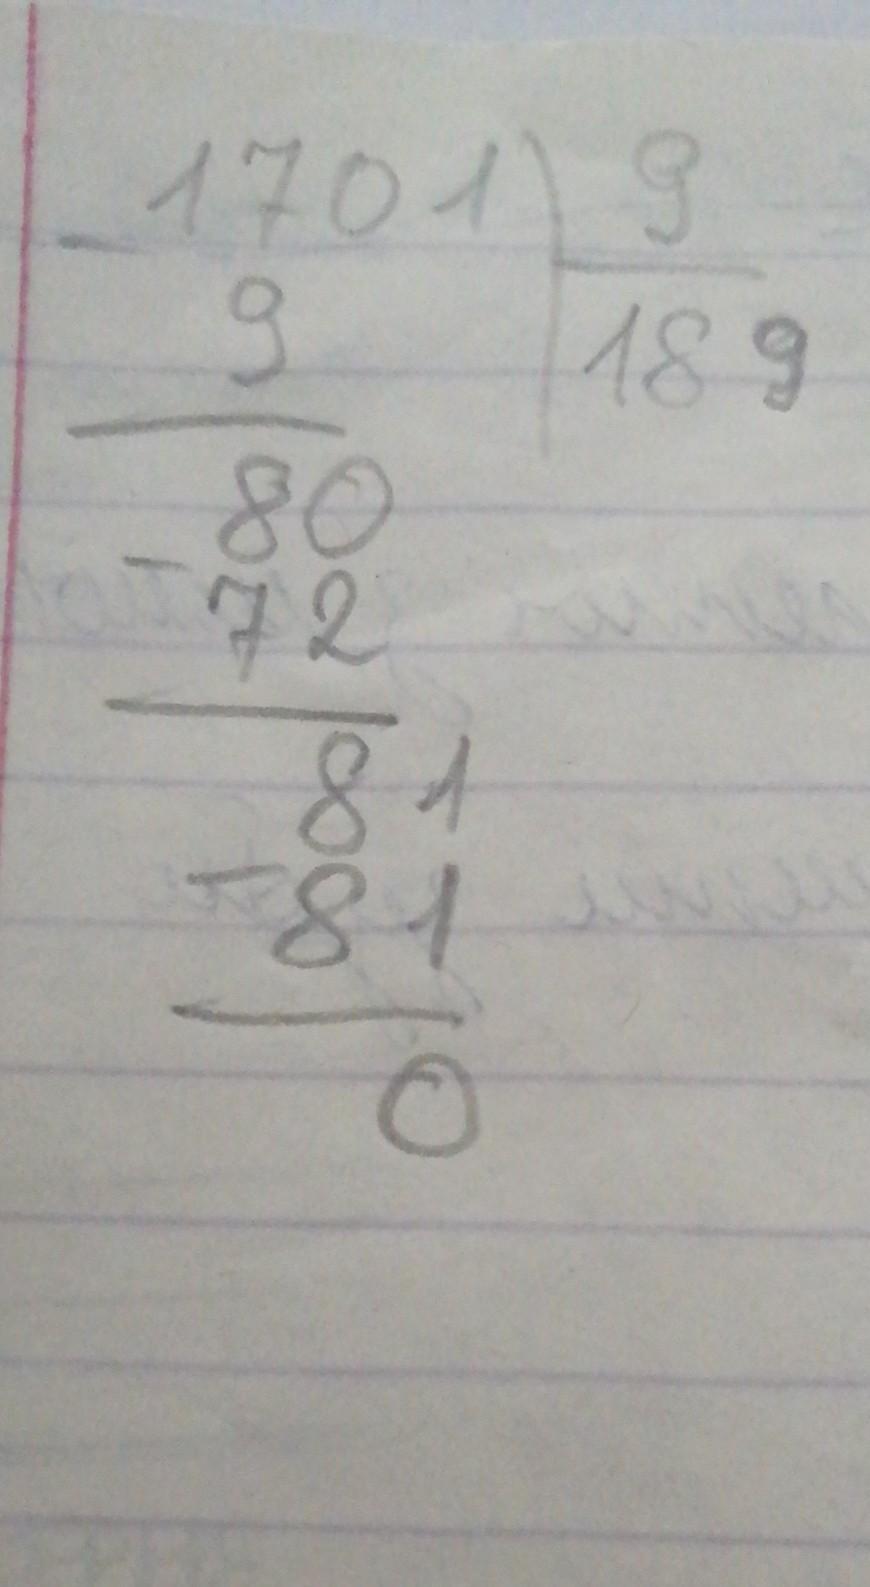 1701 9
- 9 189
80
- 72
81
- 81
0